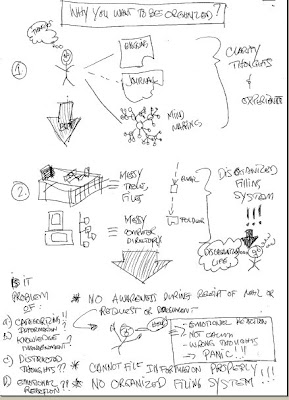 WHY YOU WANT TO BE ORGANIZED?
THOUGHTS
BLOGGING
1
JOURNALING
CLARITY
THOUGHTS
&
EXPERIENCES
MIND
MAPPING
BUT
2
MESSY
TABLE
FILES
EMAIL
DISORGANIZED
FILING
SYSTEM
!!!
MESSY
COMPUTER
DIRECTORY
FOLDER
DISORGANIZED
LIFE
IS IT
PROBLEM
OF:
* NO AWARENESS DURING RECEIPT OF MAIL OR
REQUEST OR DOCUMENT
a) CATEGORIZING
INFORMATION?
!!
HELP!
- EMOTIONAL REACTION
- NOT CALM
- WRONG THOUGHTS
PANIC!!
b) KNOWLEDGE
MANAGEMENT?
c) DISTRACTED
THOUGHTS??
* CANNOT FILE INFORMATION PROPERLY!!!
d) EMOTIONAL
REACTION
?!
* NO ORGANIZED FILING SYSTEM!!!